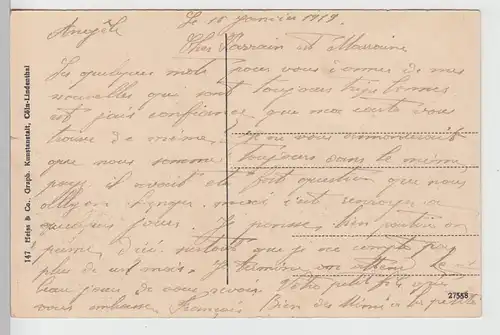 Angèle
Le 15 janvier 1919.
Cher Parrain et Marraine
quelques mots pour vous donner de mes
nouvelles qui sont toujours très bonnes
et j'ai confiance que ma carte vous
trouve de même. Je vous
que nous sommes toujours dans le même
pays il avait été fort question que nous
changer mais c'est
quelques jours. Je pense bien
d'ici surtout que je ne compte pas
plus de un mois. Je termine en le
jour de vous revoir. Votre petit fils que
vous embrasse François Bien des à la petite
147 Heiss & Co., Graph. Kunstanstalt, Cöln-Lindenthal
27558